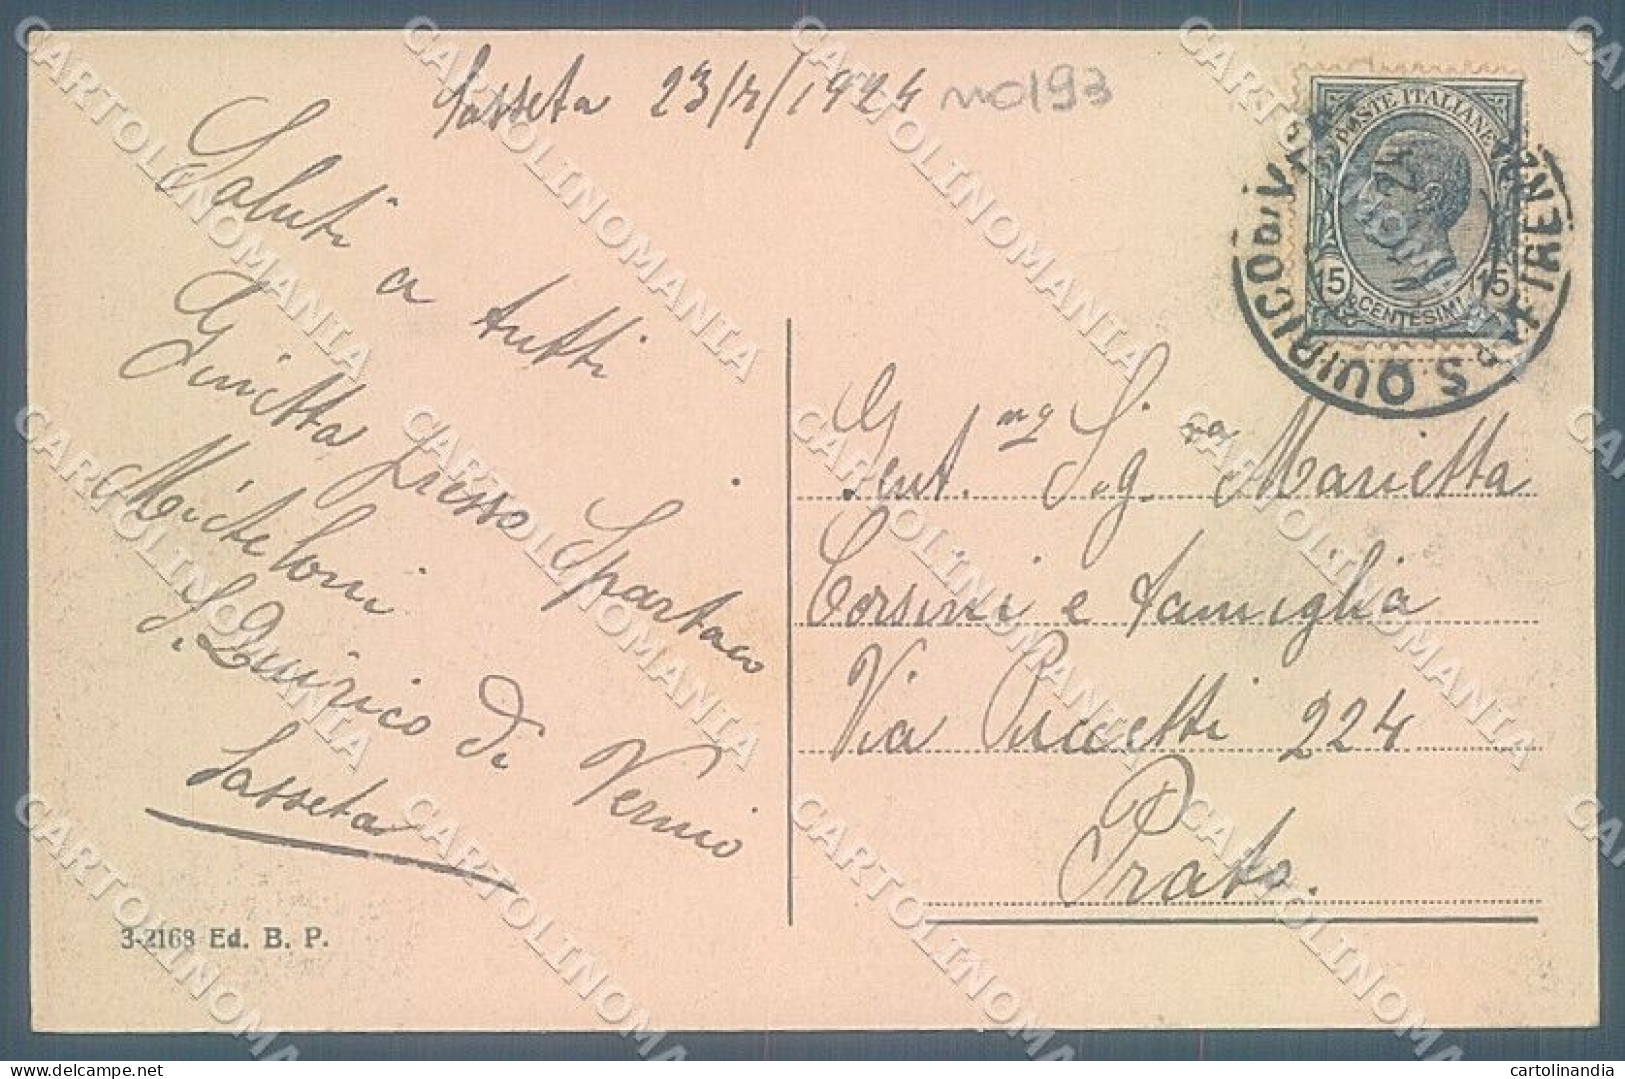 Sasseta 23/7/1924
mo193
Saluti a tutti
Ginetta presso Spartaco
Micheloni
S. Quirico di Vernio
Sasseta
3-2168 Ed. B. P.
POSTE ITALIANE
15 CENTESIMI 15
S. QUIRICO DI V
FIRENZE
24
Gent.ma Sig.ra Marietta
Corsini e famiglia
Via Puccetti 224
Prato.
CARTOLINOMANIA
cartolinandia